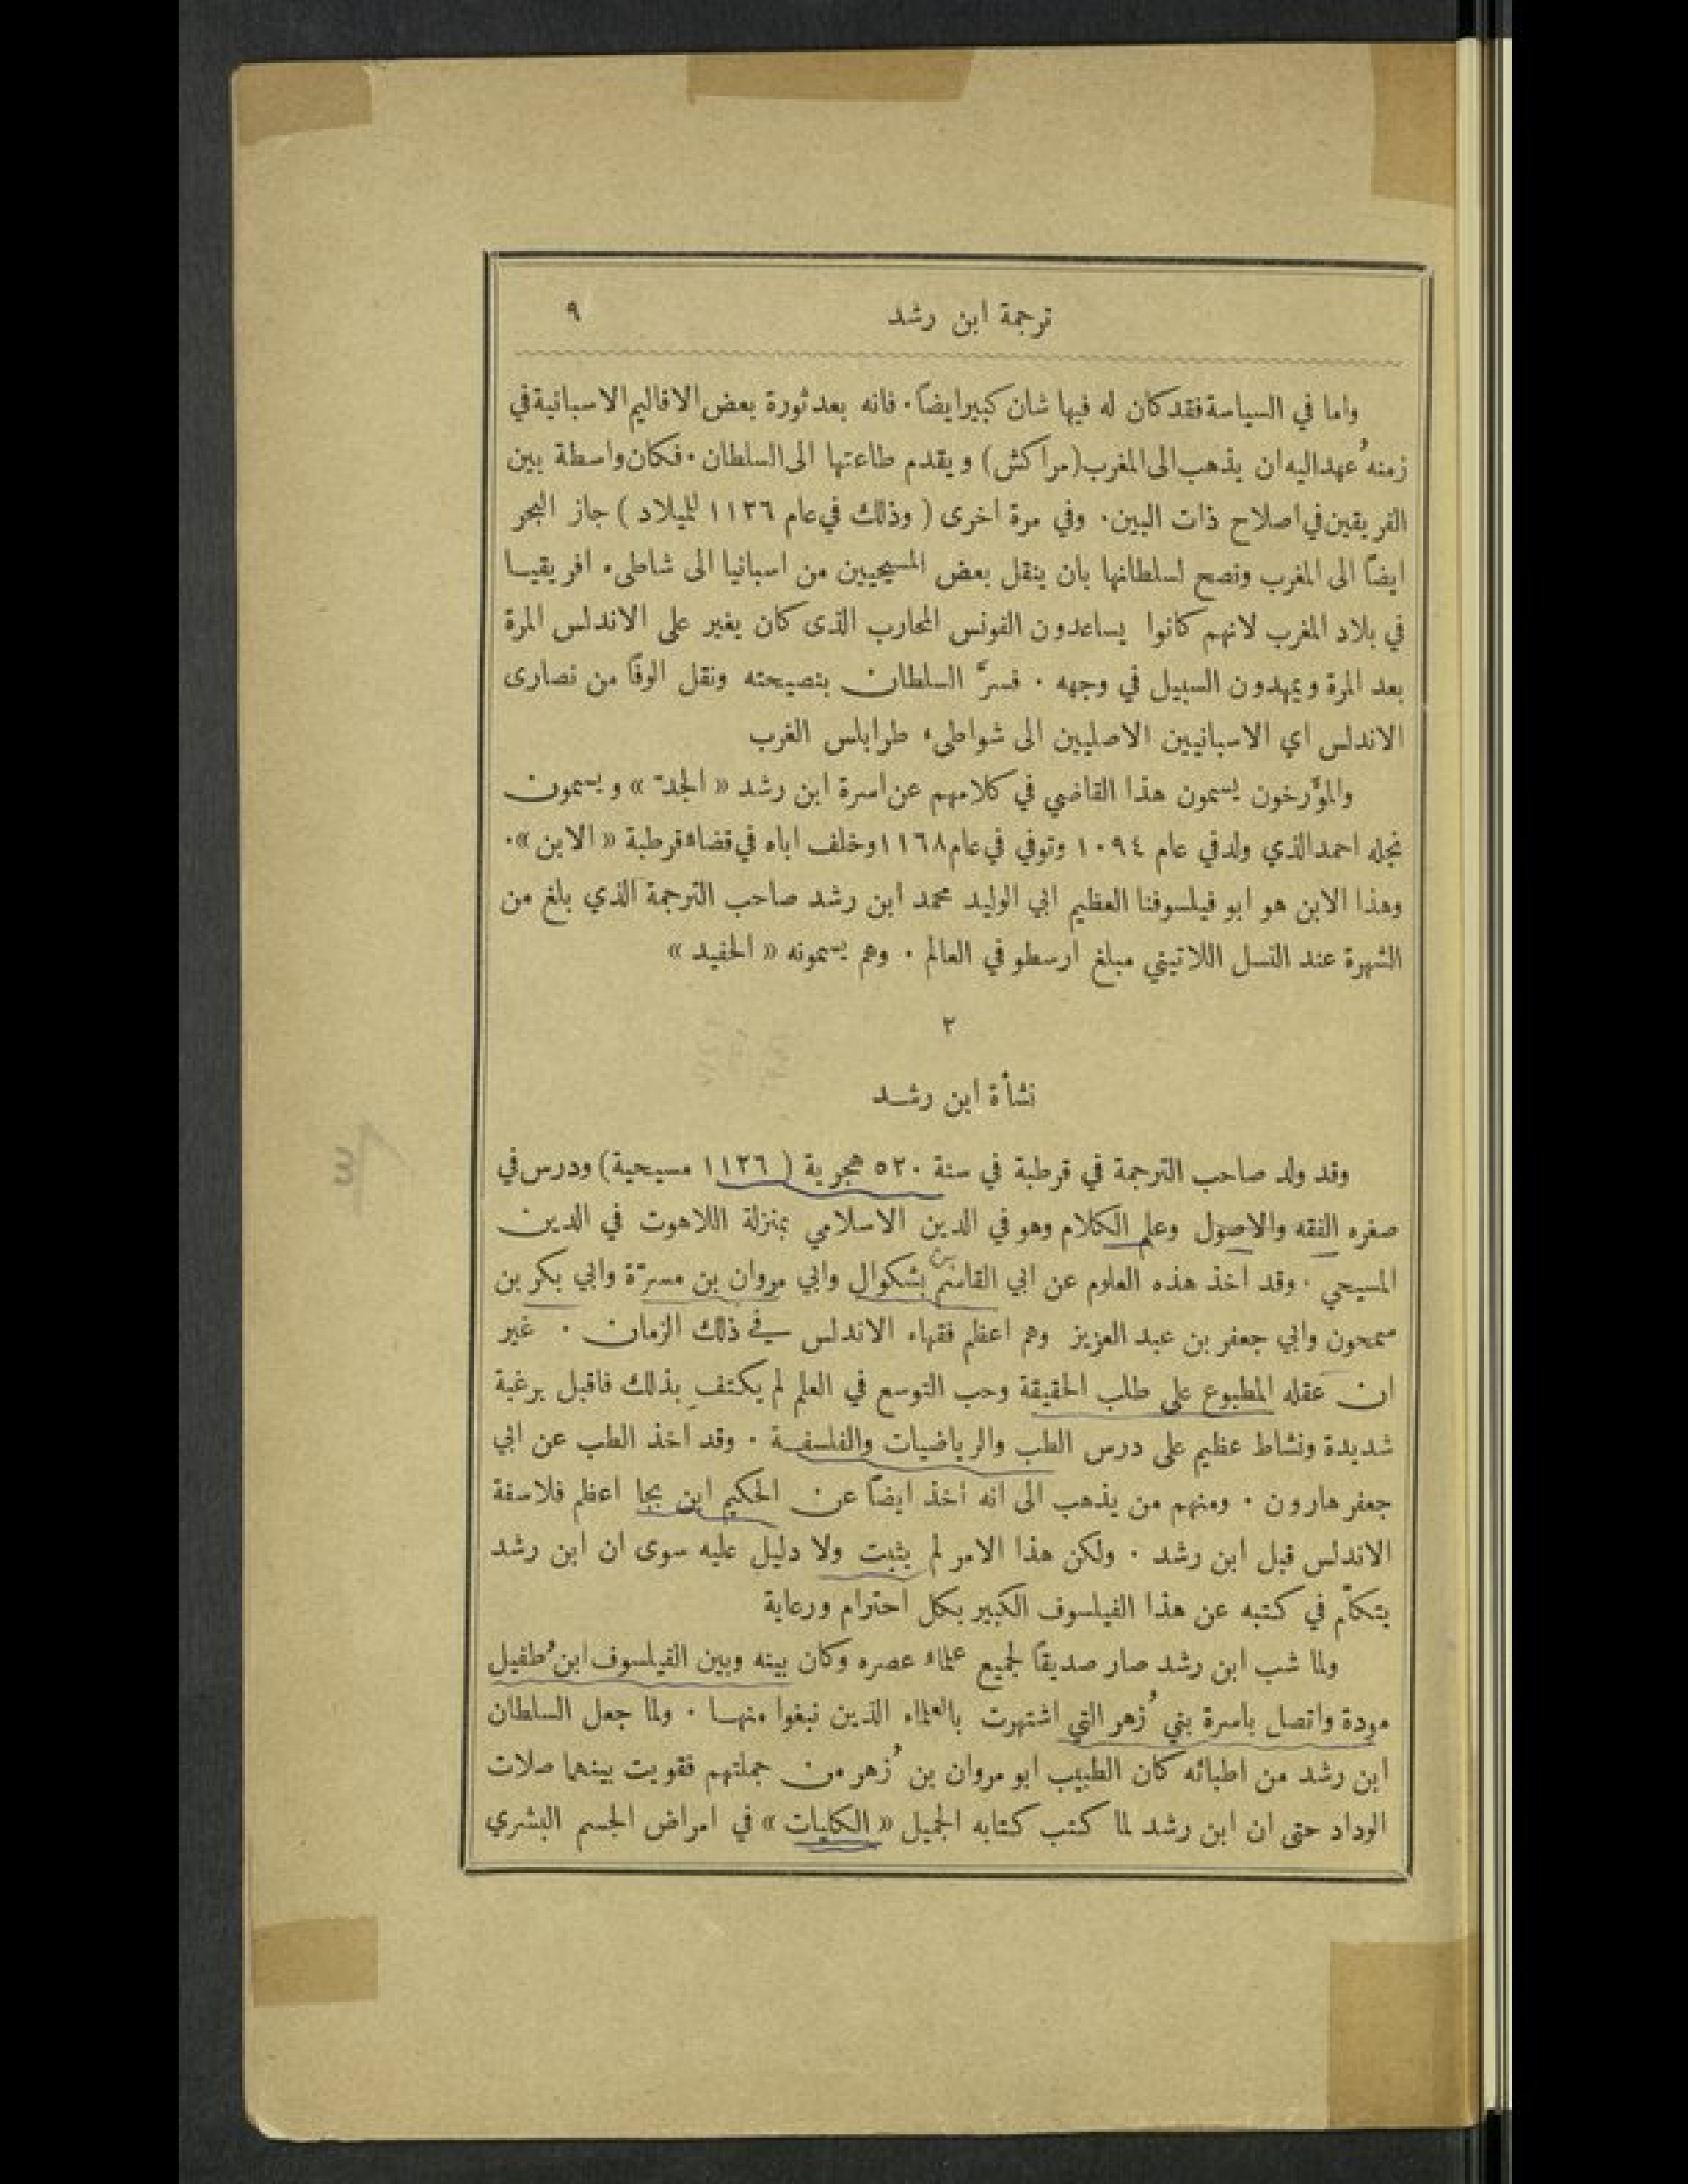 ترجمة ابن رشد ٩
واما في السياسة فقد كان له فيها شان كبير ايضاً. فانه بعد ثورة بعض الاقاليم الاسبانية في
زمنه عُهد اليه ان يذهب الى المغرب (مراكش) ويقدم طاعتها الى السلطان. فكان واسطة بين
الفريقين في اصلاح ذات البين. وفي مرة اخرى (وذلك في عام ١١٢٦ للميلاد) جاز البحر
ايضاً الى المغرب ونصح لسلطانها بان ينقل بعض المسيحيين من اسبانيا الى شاطىء افريقيا
في بلاد المغرب لانهم كانوا يساعدون الفونس المحارب الذى كان يغير على الاندلس المرة
بعد المرة ويمهدون السبيل في وجهه. فسرَّ السلطان بنصيحته ونقل الوفاً من نصارى
الاندلس اي الاسبانيين الاصليين الى شواطىء طرابلس الغرب
والمؤَرخون يسمون هذا القاضي في كلامهم عن اسرة ابن رشد «الجدّ» ويسمون
نجله احمد الذي ولد في عام ١٠٩٤ وتوفي في عام ١١٦٨ وخلف اباه في قضاء قرطبة «الابن».
وهذا الابن هو ابو فيلسوفنا العظيم ابي الوليد محمد ابن رشد صاحب الترجمة الذي بلغ من
الشهرة عند النسل اللاتيني مبلغ ارسطو في العالم. وهم يسمونه «الحفيد»
٢
نشأة ابن رشد
وقد ولد صاحب الترجمة في قرطبة في سنة ٥٢٠ هجرية (١١٢٦ مسيحية) ودرس في
صغره الفقه والاصول وعلم الكلام وهو في الدين الاسلامي بمنزلة اللاهوت في الدين
المسيحي. وقد اخذ هذه العلوم عن ابي القاسم بن بشكوال وابي مروان بن مسرّة وابي بكر بن
سمحون وابي جعفر بن عبد العزيز وهم اعظم فقهاء الاندلس في ذلك الزمان. غير
ان عقله المطبوع على طلب الحقيقة وحب التوسع في العلم لم يكتفِ بذلك فاقبل برغبة
شديدة ونشاط عظيم على درس الطب والرياضيات والفلسفة. وقد اخذ الطب عن ابي
جعفر هارون. ومنهم من يذهب الى انه اخذ ايضاً عن الحكيم ابن بجا اعظم فلاسفة
الاندلس قبل ابن رشد. ولكن هذا الامر لم يثبت ولا دليل عليه سوى ان ابن رشد
يتكلّم في كتبه عن هذا الفيلسوف الكبير بكل احترام ورعاية
ولما شب ابن رشد صار صديقاً لجميع علماء عصره وكان بينه وبين الفيلسوف ابن طُفيل
مودة واتصل باسرة بني زُهر التي اشتهرت بالعلماء الذين نبغوا منها. ولما جعل السلطان
ابن رشد من اطبائه كان الطبيب ابو مروان بن زُهر من جملتهم فقويت بينهما صلات
الوداد حتى ان ابن رشد لما كتب كتابه الجميل «الكليات» في امراض الجسم البشري